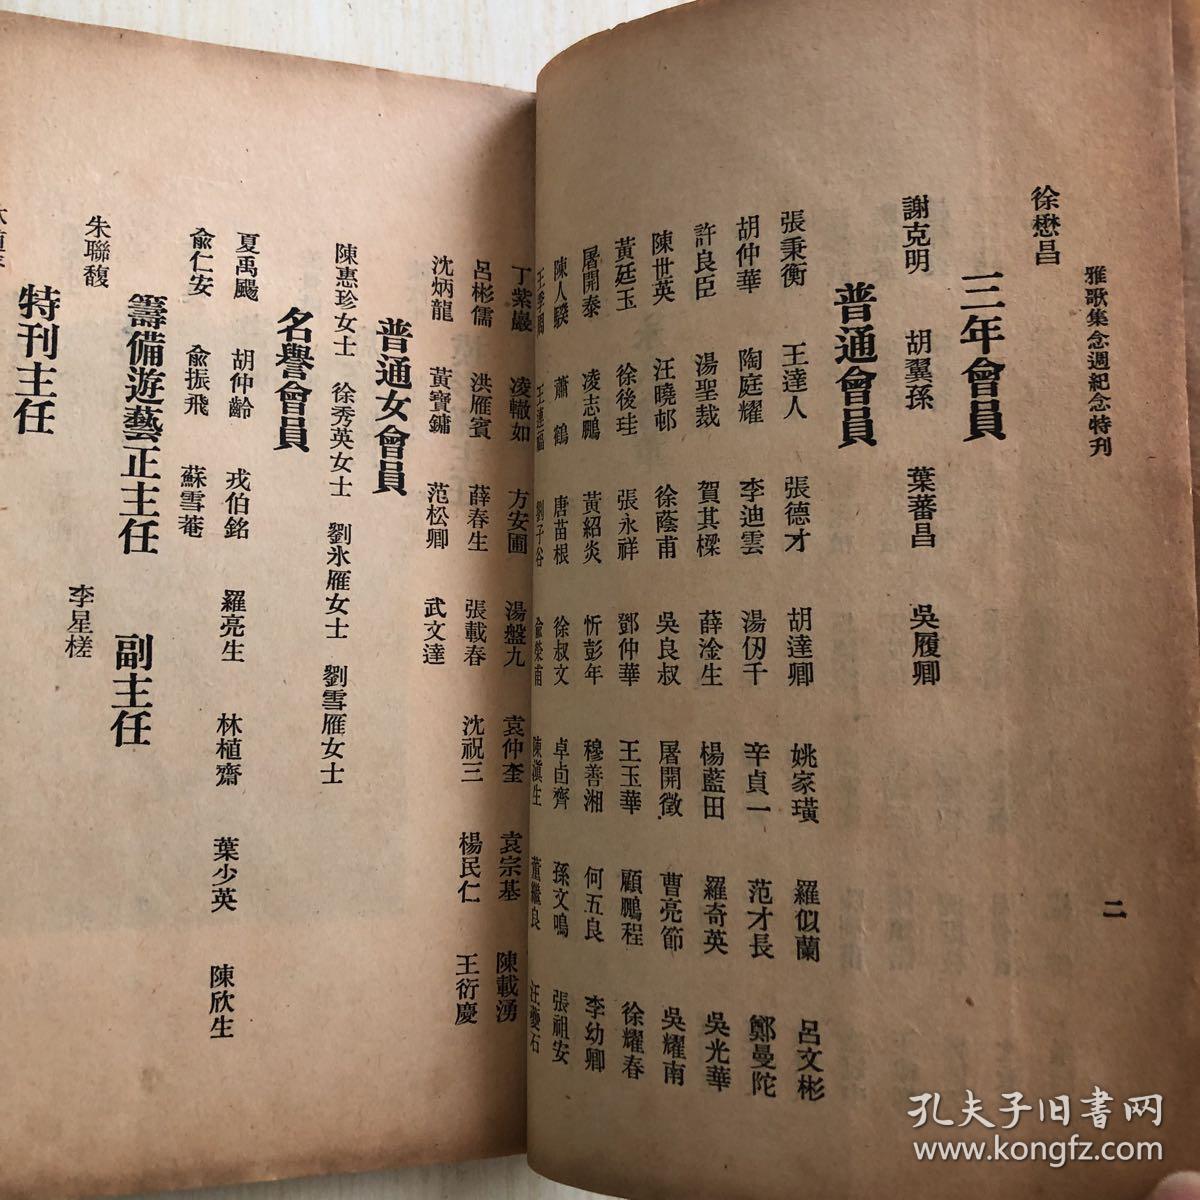 雅歌集念週紀念特刊
二
徐懋昌
三年會員
謝克明 胡翼孫 葉蕃昌 吳履卿
普通會員
張秉衡 王達人 張德才 胡達卿 姚家璜 羅似蘭 呂文彬
胡仲華 陶庭耀 李迪雲 湯仞千 辛貞一 范才長 鄭曼陀
許良臣 湯聖裁 賀其樑 薛淦生 楊藍田 羅奇英 吳光華
陳世英 汪曉邨 徐蔭甫 吳良叔 屠開徵 曹亮節 吳耀南
黃廷玉 徐後珪 張永祥 鄧仲華 王玉華 顧鵬程 徐耀春
屠開泰 凌志鵬 黃紹炎 忻彭年 穆善湘 何五良 李幼卿
陳人騤 蕭鶴 唐苗根 徐叔文 卓卣齊 孫文鳴 張祖安
王連福 劉子谷 俞榮甫 陳滇生 董繼良 汪夔石
丁紫巖 凌轍如 方安圃 湯盤九 袁仲奎 袁宗基 陳載湧
呂彬儒 洪雁賓 薛春生 張載春 沈祝三 楊民仁 王衍慶
沈炳龍 黃寶鏞 范松卿 武文達
普通女會員
陳惠珍女士 徐秀英女士 劉氷雁女士 劉雪雁女士
名譽會員
夏禹颺 胡仲齡 戎伯銘 羅亮生 林植齋 葉少英 陳欣生
俞仁安 俞振飛 蘇雪菴
籌備遊藝正主任 副主任
朱聯馥 李星槎
特刊主任
孔夫子旧書网
www.kongfz.com